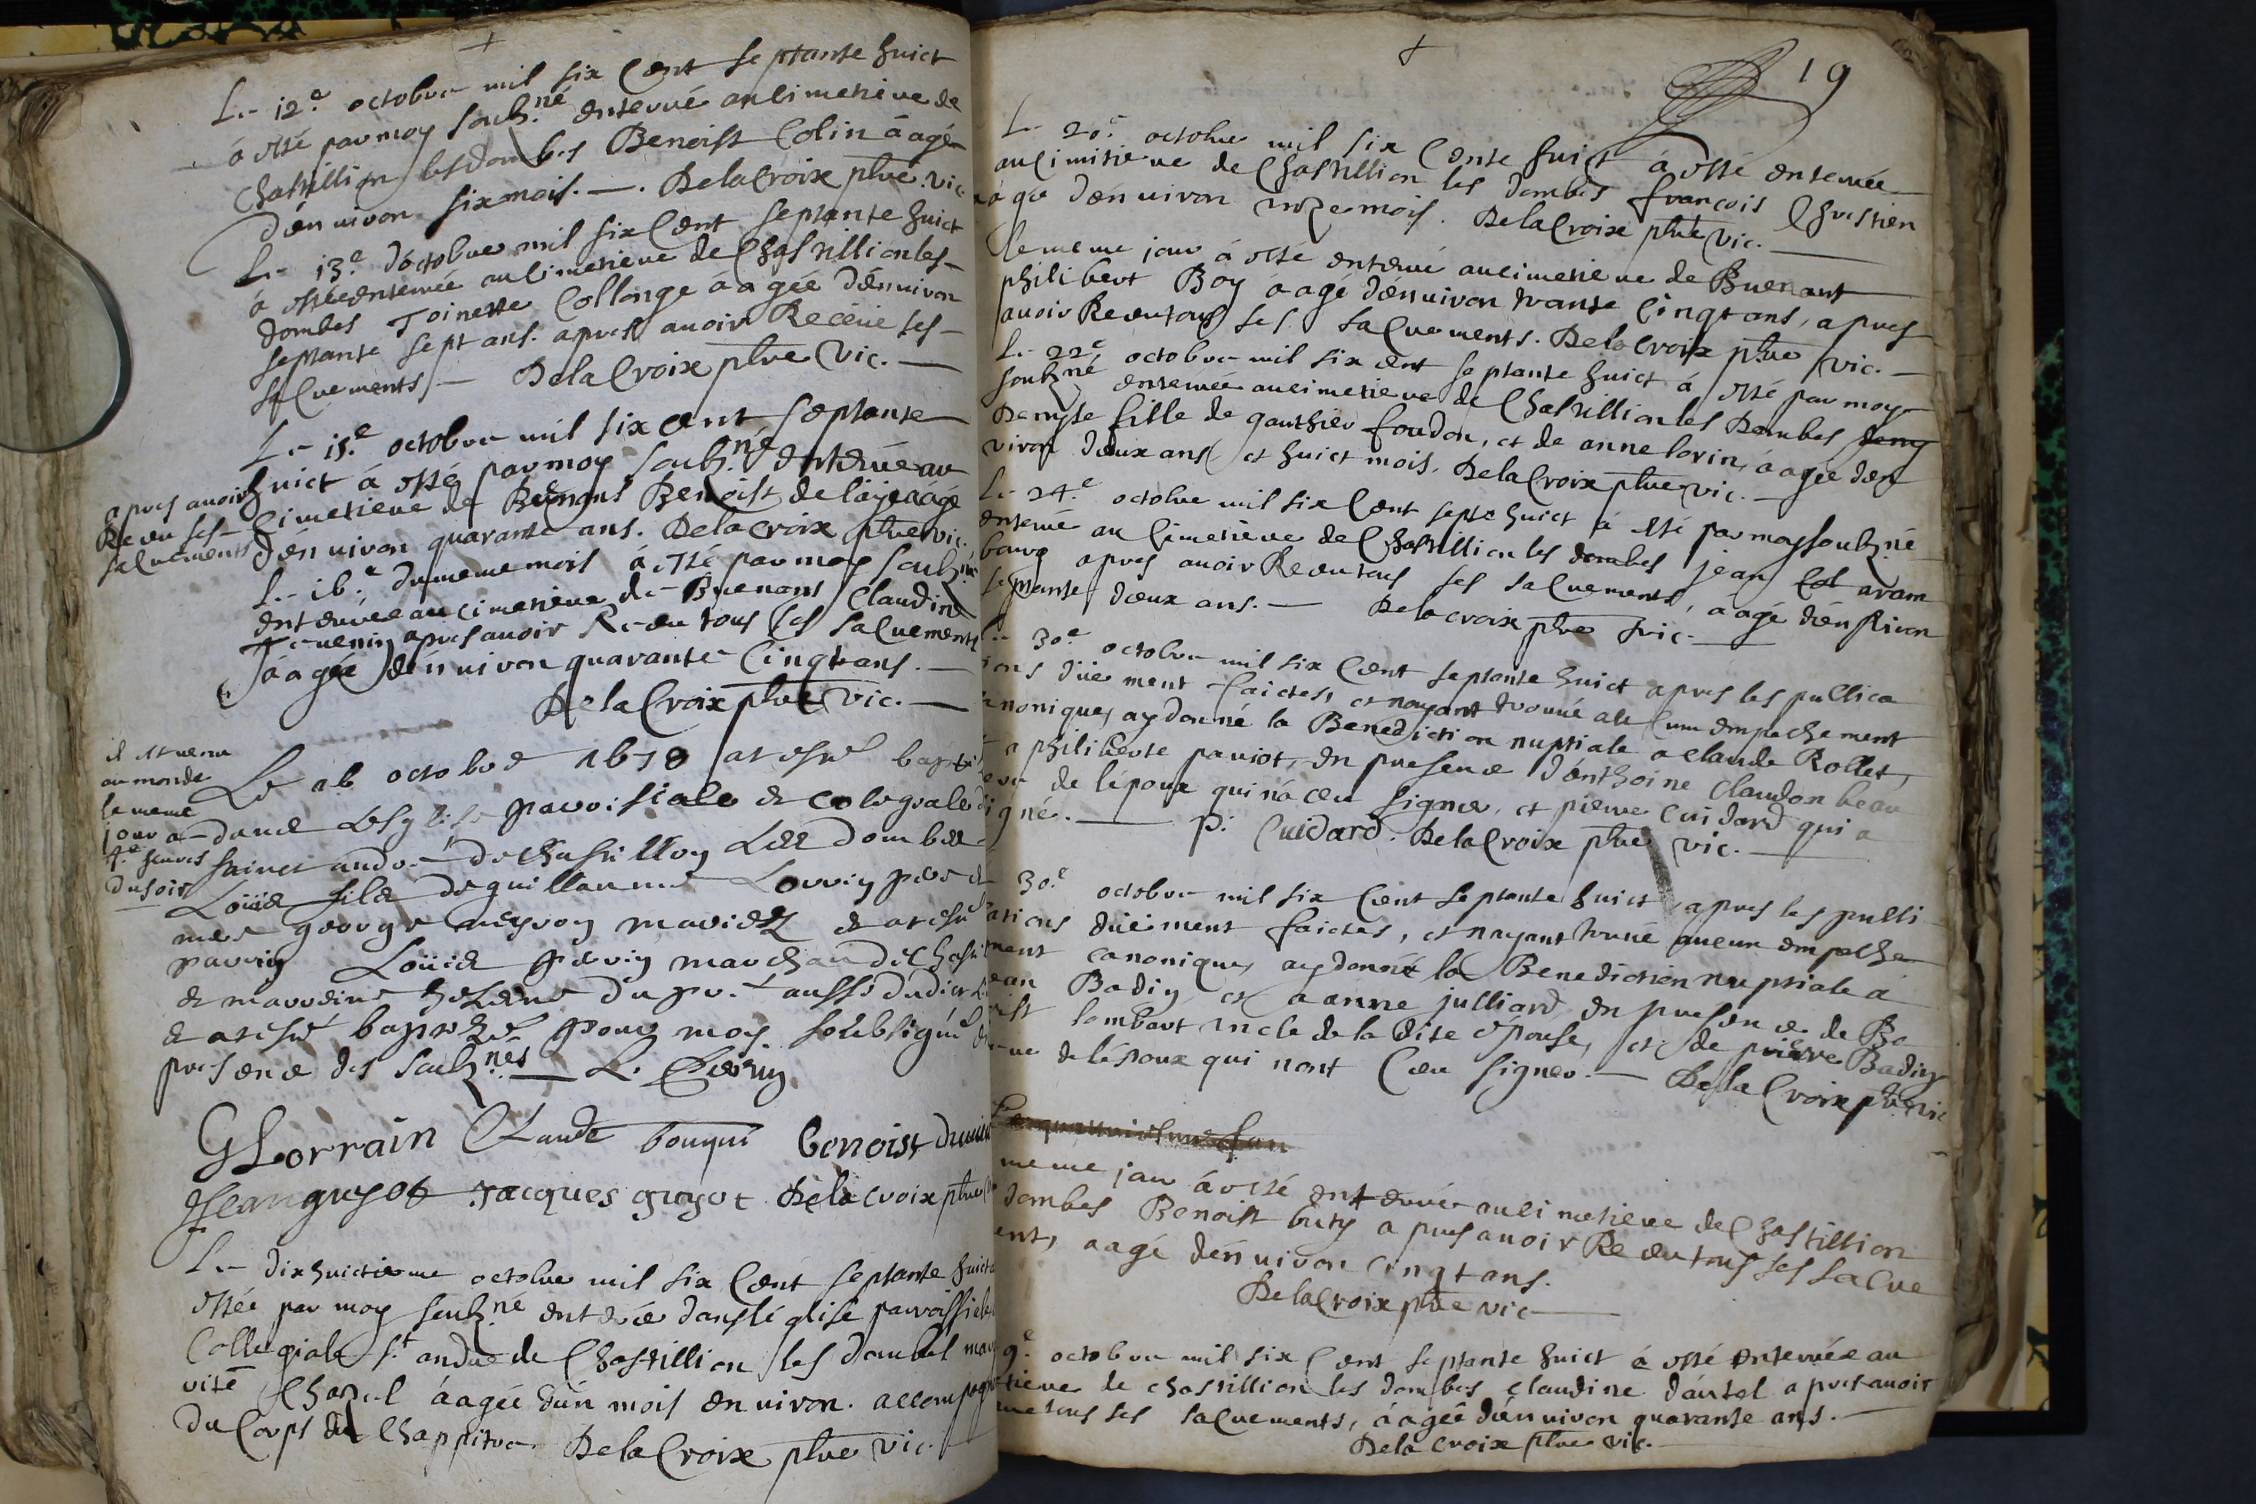 Le 12.e octobre mil six Cent septante huict
à esté par moy soubz.né enterré au cimetiere de
Chastillion les dombes Benoist Colin âagé
d'enuiron six mois. — . De la Croix ptre. vic.
Le 13.e d'octobre mil six Cent septante huict
à estée enterrée au Cimetiere de Chastillion les
dombes Toinette Collonge âagée d'enuiron
septante sept ans. apres auoir Receüe ses
sacrements — De la Croix ptre vic. —
Le 15.e octobre mil six cent septante
huict à esté par moy soubz.né enterré au
Cimetiere de Buenans Benoist de laye âagé
d'enuiron quarante ans. De la croix ptre vic.
apres auoir
Receu ses
sacrements
Le 16.e du meme mois à esté par moy soubz.né
enterrée au cimetiere de Buenans Claudine
apres auoir Receu tous ses sacrements
âagée d'enuiron quarante Cinq ans. —
De la Croix ptre vic. —
il est venu
au monde
le meme
jour a
4.e heures
du soir
Le 16 octobre 1678 at esté baptisé
dans Lesglise parroisiale et colegiale
sainct andré de chastillon Les dombes
Loüis fils de guillaume Lorrin
george meyron mariez et at esté
parrin Loüis perrin marchand de chastillon
et marreine helene du pr.t aussi dudict
et at esté baptizé par moy soubsigné
presence des soubz.nés — L. Perrin
G Lorrain Claude bouqui benoist
Jean guyot Jacques guyot De la croix ptre
Le dixhuictieme octobre mil six Cent septante huict
estée par moy soubz.né enterrée dans l'église parroissiale
Collegiale s.t andré de Chastillion les dombes
Chanel âagée d'un mois enuiron. accompagné
du Corps du Chappitre De la Croix ptre vic.
19
Le 20.e octobre mil six Cents huict à esté enterrée
au Cimitiere de Chastillion les dombes francois Chrestien
âagé d'enuiron unze mois. De la Croix ptre vic. —
le meme jour à esté enterré au cimetiere de Buenant
philibert Boy âagé d'enuiron trante Cinq ans, apres
auoir Receu tous ses sacrements. De la Croix ptre vic. —
Le 22.e octobre mil six cent septante huict à esté par moy
soubzné enterrée au cimetiere de Chastillion les Dombes deny
Denyse fille de gauthier foudon, et de anne lorin, âagée d'en
viron deux ans et huict mois. De la Croix ptre vic. —
Le 24.e octobre mil six Cent septe huict à esté par moy soubz.né
enterré au Cimetiere de Chastillion les dombes jean Col aram
bourg apres auoir Receu tous ses sacrements, aagé d'enuiron
septante deux ans. — De la croix ptre vic. —
Le 30.e octobre mil six Cent septante huict apres les publica
tions düement faictes, et nayant trouué alcun empechement
canonique, ay donné la Benediction nuptiale a claude Rollet,
a philiberte pauiot, en presence d'enthoine claudon beau
de lépoux qui n'a ceu signer, et pierre Cuidard qui a
signé. — p: Cuidard. De la Croix ptre vic. —
30.e octobre mil six Cent septante huict, apres les publi
cations düement faictes, et nayant trouué aucun empeche
ment canonique, ay donné la Benediction nuptiale a
jean Badin et a anne julliard en presence de Be
noist lombart uncle de la dite épouse, et de pierre Badin
de l'époux qui nont Ceu signer. — De la Croix ptre vic
meme jour à esté enterré au cimetiere de Chastillion
dombes Benoist buty apres auoir Receu tous ses sacre
ments, aagé d'enuiron Cinqt ans.
De la Croix ptre vic —
9.e octobre mil six Cent septante huict à esté enterrée au
cimetiere de chastillion les dombes claudine dántel apres auoir
tous ses sacrements, âagée d'enuiron quarante ans. —
De la croix ptre vic. —